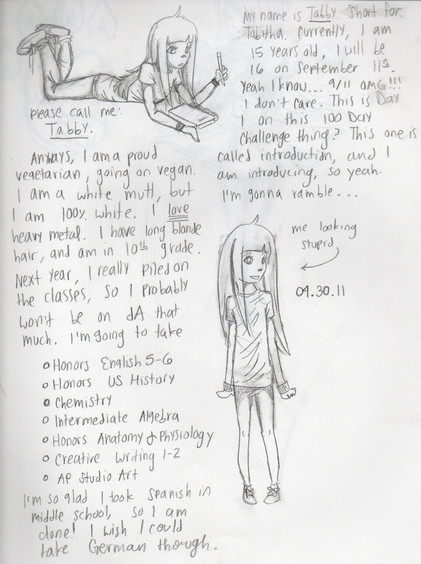 My name is Tabby short for
Tabitha. Currently, I am
15 years old, I will be
16 on September 11th.
Yeah I know... 9/11 OMG!!!
I don't care. This is Day
1 on this 100 Day
Challenge thing? This one is
called introduction, and I
am introducing, so yeah.
I'm gonna ramble...
please call me:
Tabby.
Anways, I am a proud
vegetarian, going on vegan.
I am a white mutt, but
I am 100% white. I love
heavy metal. I have long blonde
hair, and am in 10th grade.
Next year, I really piled on
the classes, so I probably
won't be on dA that
much. I'm going to take
o Honors English 5-6
o Honors US History
o Chemistry
o Intermediate Algebra
o Honors Anatomy & Physiology
o Creative Writing 1-2
o AP Studio Art
I'm so glad I took Spanish in
middle school, so I am
done! I wish I could
take German though.
me looking
stupid
04.30.11